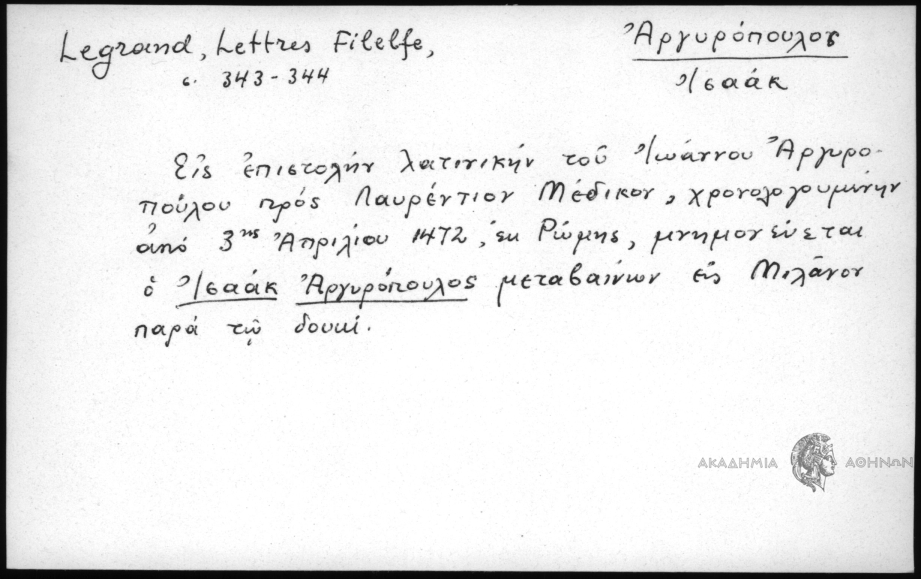 Legrand, Lettres Filelfe,
σ. 343-344
Ἀργυρόπουλος
Ἰσαάκ
Εἰς ἐπιστολὴν λατινικὴν τοῦ Ἰωάννου Ἀργυρο-
πούλου πρὸς Λαυρέντιον Μέδικον, χρονολογουμένην
ἀπὸ 3ης Ἀπριλίου 1472, ἐκ Ρώμης, μνημονεύεται
ὁ Ἰσαάκ Ἀργυρόπουλος μεταβαίνων εἰς Μιλᾶνον
παρὰ τῷ δουκί.
ΑΚΑΔΗΜΙΑ ΑΘΗΝΩΝ